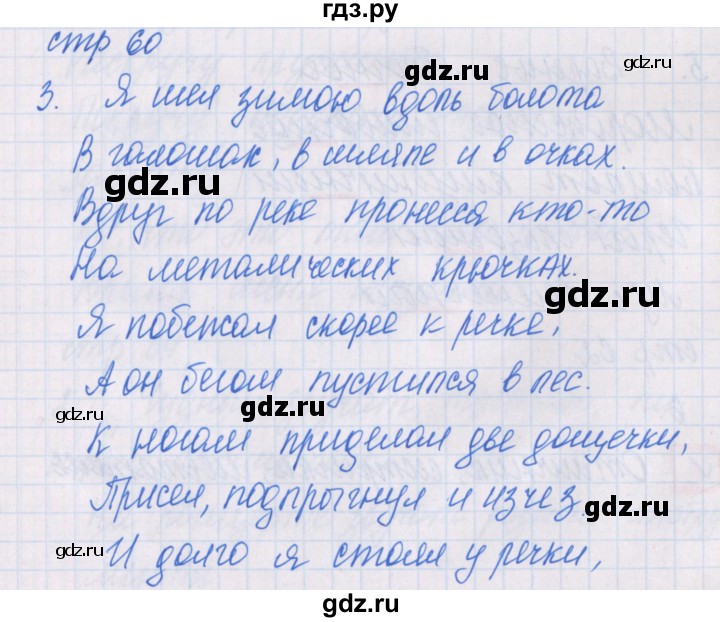 гдз.ру
стр 60
gdz.ru
gdz.ru
3. Я шел зимою вдоль болота
В галошах, в шляпе и в очках.
gdz.ru
Вдруг по реке пронесся кто-то
На металических крючках.
gdz.ru
Я побежал скорее к речке,
А он бегом пустился в лес.
gdz.ru
gdz.ru
К ногам приделал две дощечки,
Присел, подпрыгнул и изчез
gdz.ru
gdz.ru
И долго я стоял у речки,
gdz.ru